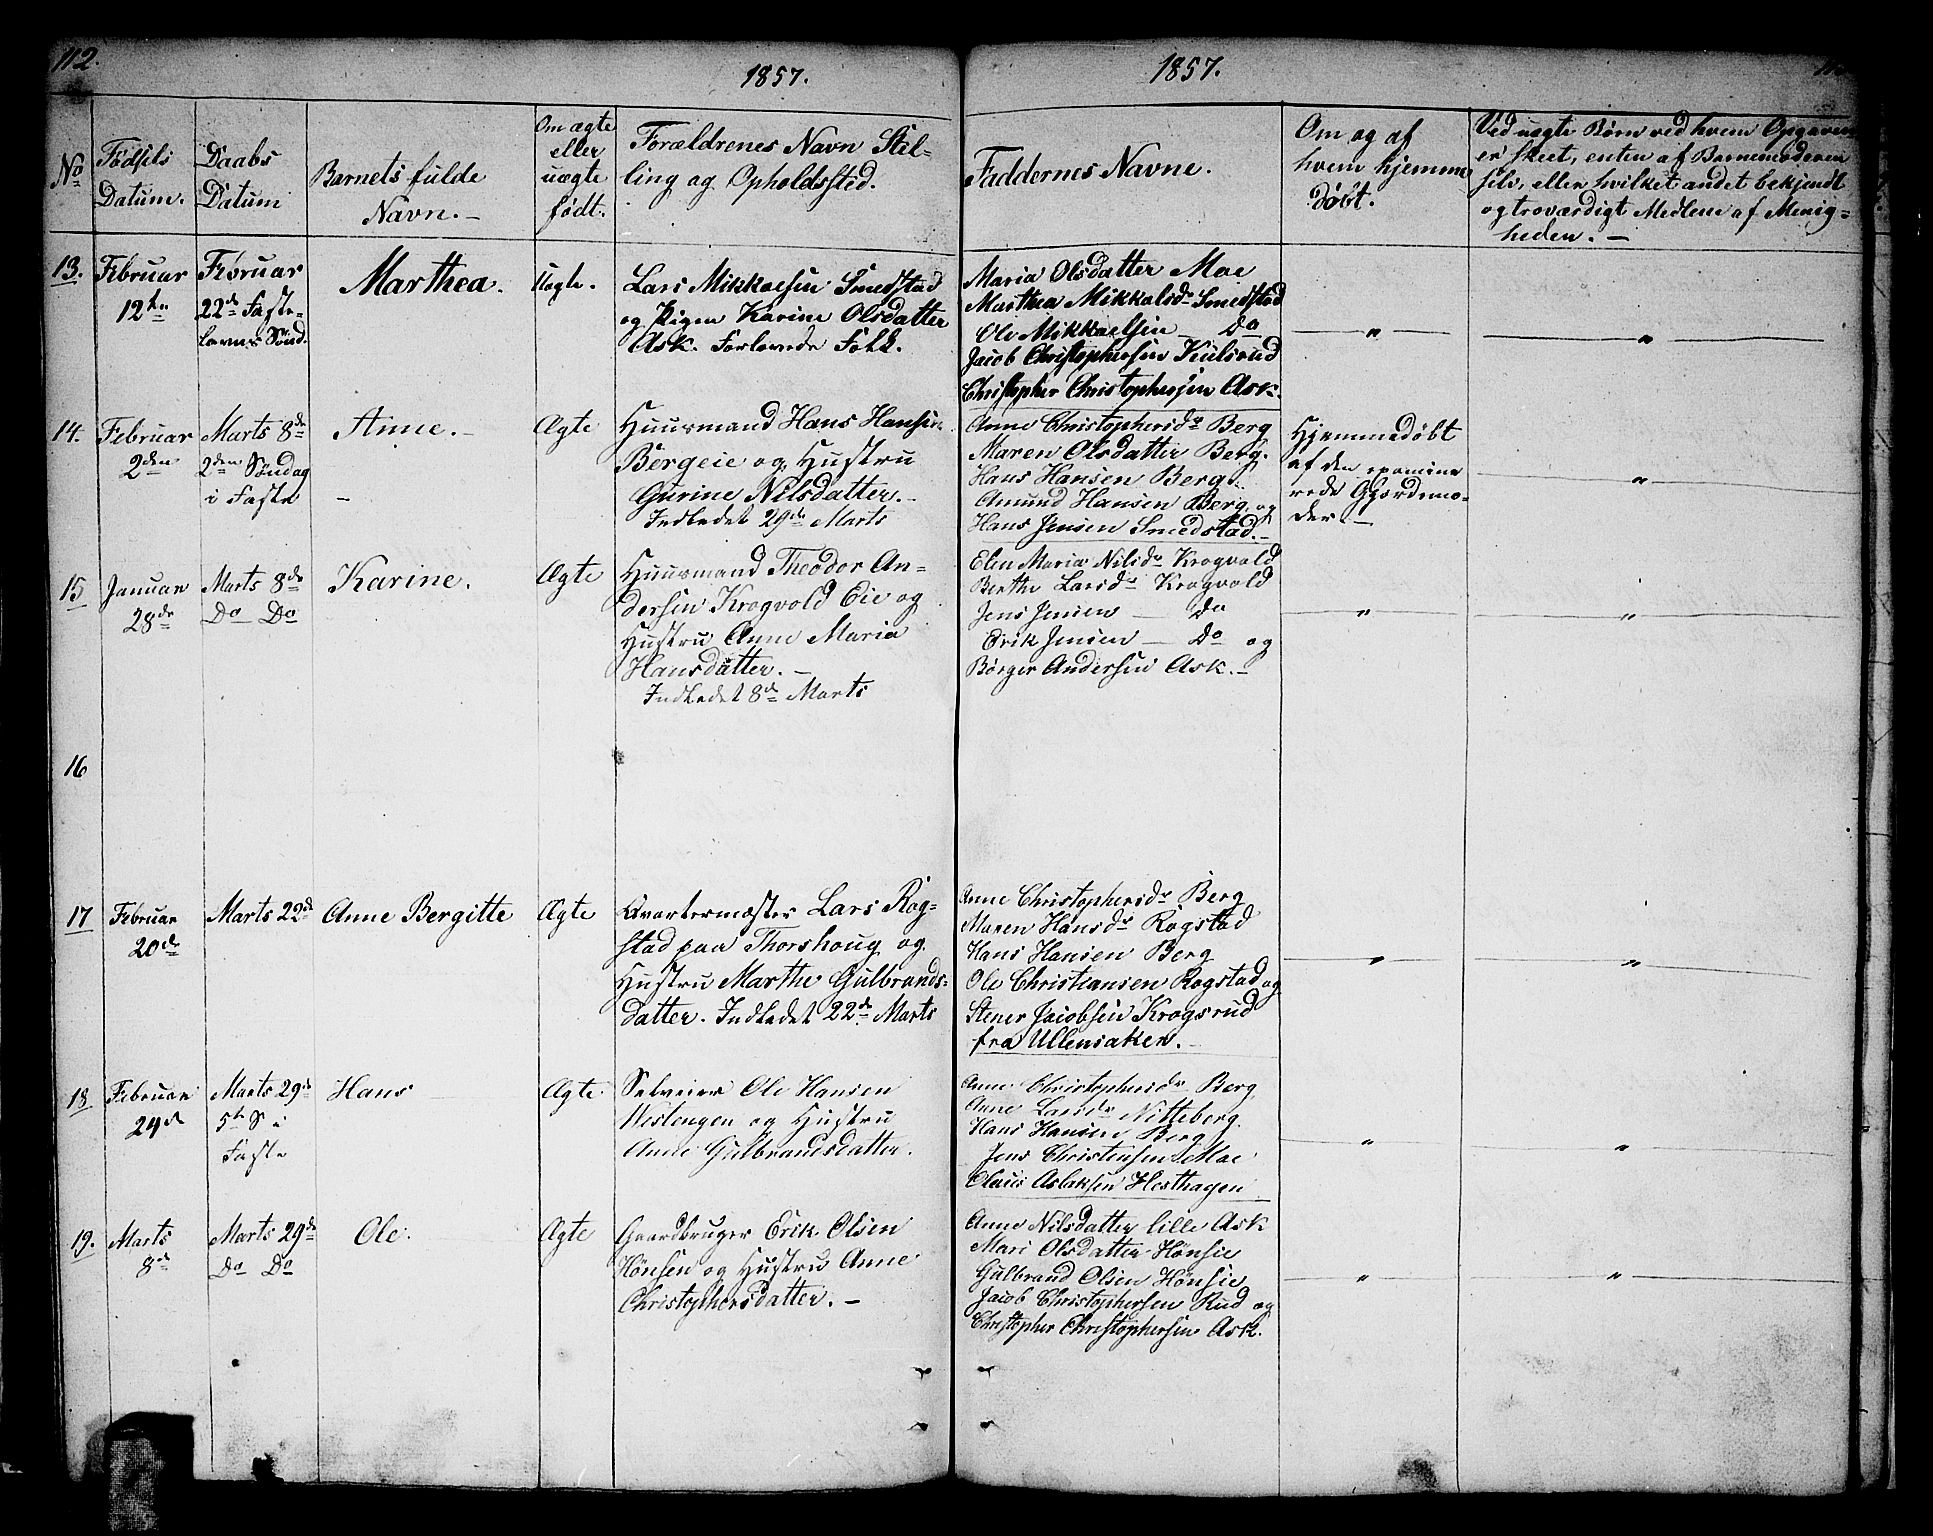 112.
1857.
No
Fødsels
Datum.
Daabs
Datum
Barnets fulde
Navn. –
Om ægte
eller
uægte
født.
Forældrenes Navn Stil-
ling og Opholdssted.
13.
Februar
12te
Februar
22de Faste-
lavns Sønd.
Marthea.
Uægte.
Lars Mikkaelsen Smedstad
og Pigen Karine Olsdatter
Ask. Forlovede Folk.
14.
Februar
2den
Marts 8de
2den Søndag
i Faste
Anne. –
Ægte
Huusmand Hans Hansen
Bergeie og Hustru
Gurine Nilsdatter. –
Indledet 29de Marts
15
Januar
28de
Marts 8de
Do Do
Karine.
Ægte
Huusmand Theodor An-
dersen Krogvold Eie og
Hustru Anne Maria
Hansdatter. –
Indledet 8de Marts
16
17
Februar
20de
Marts 22de
Anne Bergitte
Ægte
Qvartermester Lars Rog-
stad paa Thorshoug og
Hustru Marthe Gulbrands-
datter. Indledet 22de Marts
18
Februar
24de
Marts 29de
5te S i
Faste
Hans
Ægte
Selveier Ole Hansen
Westengen og Hustru
Anne Gulbrandsdatter.
19.
Marts
8de
Marts 29de
Do Do
Ole.
Ægte
Gaardbruger Erik Olsen
Hønsen og Hustru Anne
Christophersdatter. –
1857.
Faddernes Navne.
Om og af
hvem hjemme
døbt.
Ved uægte Børn ved hvem Opgaven
er skeet, enten af Barnemoderen
selv, eller hvilket andet bekjendt
og troværdigt Medlem af Menig-
heden. –
Maria Olsdatter Moe
Marthea Mikkelsdr Smedstad
Ole Mikkaelsen – Do
Jacob Christophersen Kulsrud
Christopher Christophersen Ask.
"
"
Anne Christophersdr Berg
Maren Olsdatter Berg.
Hans Hansen Berg
Amund Hansen Berg og
Hans Jensen Smedstad. –
Hjemmedøbt
af den examine
rede Gjordemo-
der. –
"
Elen Maria Nilsdr Krogvold
Berthe Larsdr Krogvold
Jens Jensen – Do
Erik Jensen – Do og
Børger Andersen Ask. –
"
"
Anne Christophersdr Berg
Maren Hansdr Rogstad
Hans Hansen Berg
Ole Christiansen Rogstad og
Stener Jacobsen Krogsrud
fra Ullensaker. –
"
"
Anne Christophersdr Berg
Anne Larsdr Nitteberg.
Hans Hansen Berg
Jens Christensen Moe
Olaus Aslaksen Hesthagen
"
"
Anne Nilsdatter lille Ask
Mari Olsdatter Hønsie
Gulbrand Olsen Hønsie
Jacob Christophersen Rud og
Christopher Christophersen Ask.
"
"